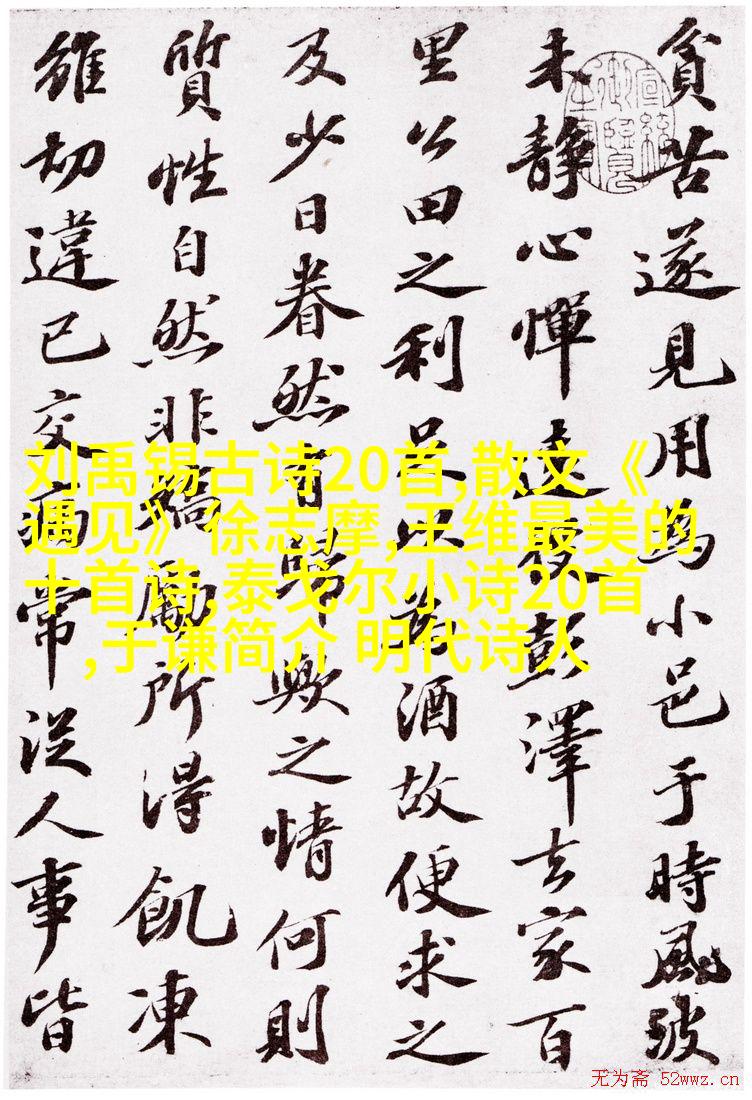 貧苦遂見用為小邑于時風波
未靜心憚遠役彭澤去家百
里公田之利足以為酒故便求之
及少日眷然有歸歟之情何則
質性自然非矯勵所得飢凍
雖切違已交病常從人事皆
刘禹锡古诗20首,散文《
遇见》徐志摩,王维最美的
十首诗,泰戈尔小诗20首
,于谦简介 明代诗人
无为斋 52wwz.cn